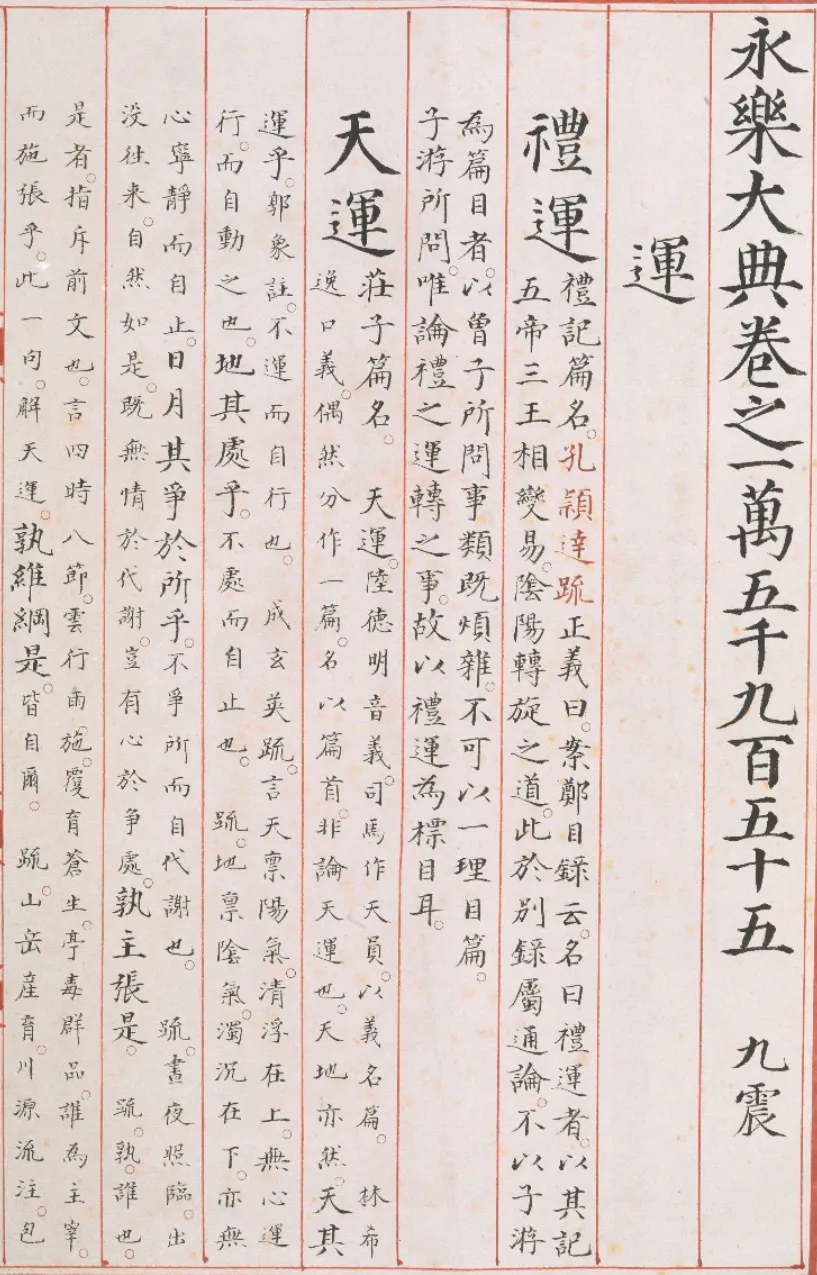 永樂大典卷之一萬五千九百五十五　九震
運
禮運
禮記篇名。孔頴達䟽正義曰。案鄭目錄云。名曰禮運者。以其記
五帝三王相變易。隂陽轉旋之道。此於别錄屬通論。不以子游
為篇目者。以曾子所問事類既煩雜。不可以一理目篇。
子游所問。唯論禮之運轉之事。故以禮運為標目耳。
天運
莊子篇名。　天運。陸德明音義。司馬作天員。以義名篇。　林希
逸口義。偶然分作一篇。名以篇首。非論天運也。天地亦然。天其
運乎。郭象註。不運而自行也。　成玄英䟽。言天禀陽氣。清浮在上。無心運
行。而自動之也。地其處乎。不處而自止也。　䟽。地禀隂氣。濁沉在下。亦無
心寧靜而自止。日月其爭於所乎。不爭所而自代謝也。　䟽。晝夜照臨。出
没徃来。自然如是。既無情於代謝。豈有心於爭處。孰主張是。　䟽。孰。誰也。
是者。指斥前文也。言四時八節。雲行雨施。覆育蒼生。亭毒群品。誰為主宰。
而施張乎。此一句。解天運。孰維綱是。皆自爾。　䟽。山岳產育。川源流注。包